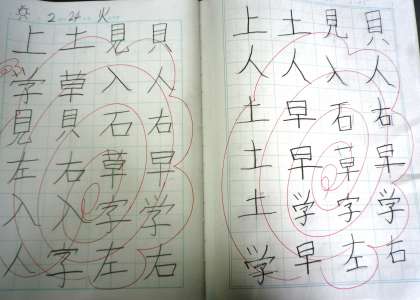 2.24 火
上 土 見 貝
学 草 入 人
見 貝 石 右
左 右 草 早
入 入 字 学
人 字 左 右
上 土 見 貝
人 人 入 人
土 早 石 右
土 早 草 早
土 学 字 学
学 早 左 右